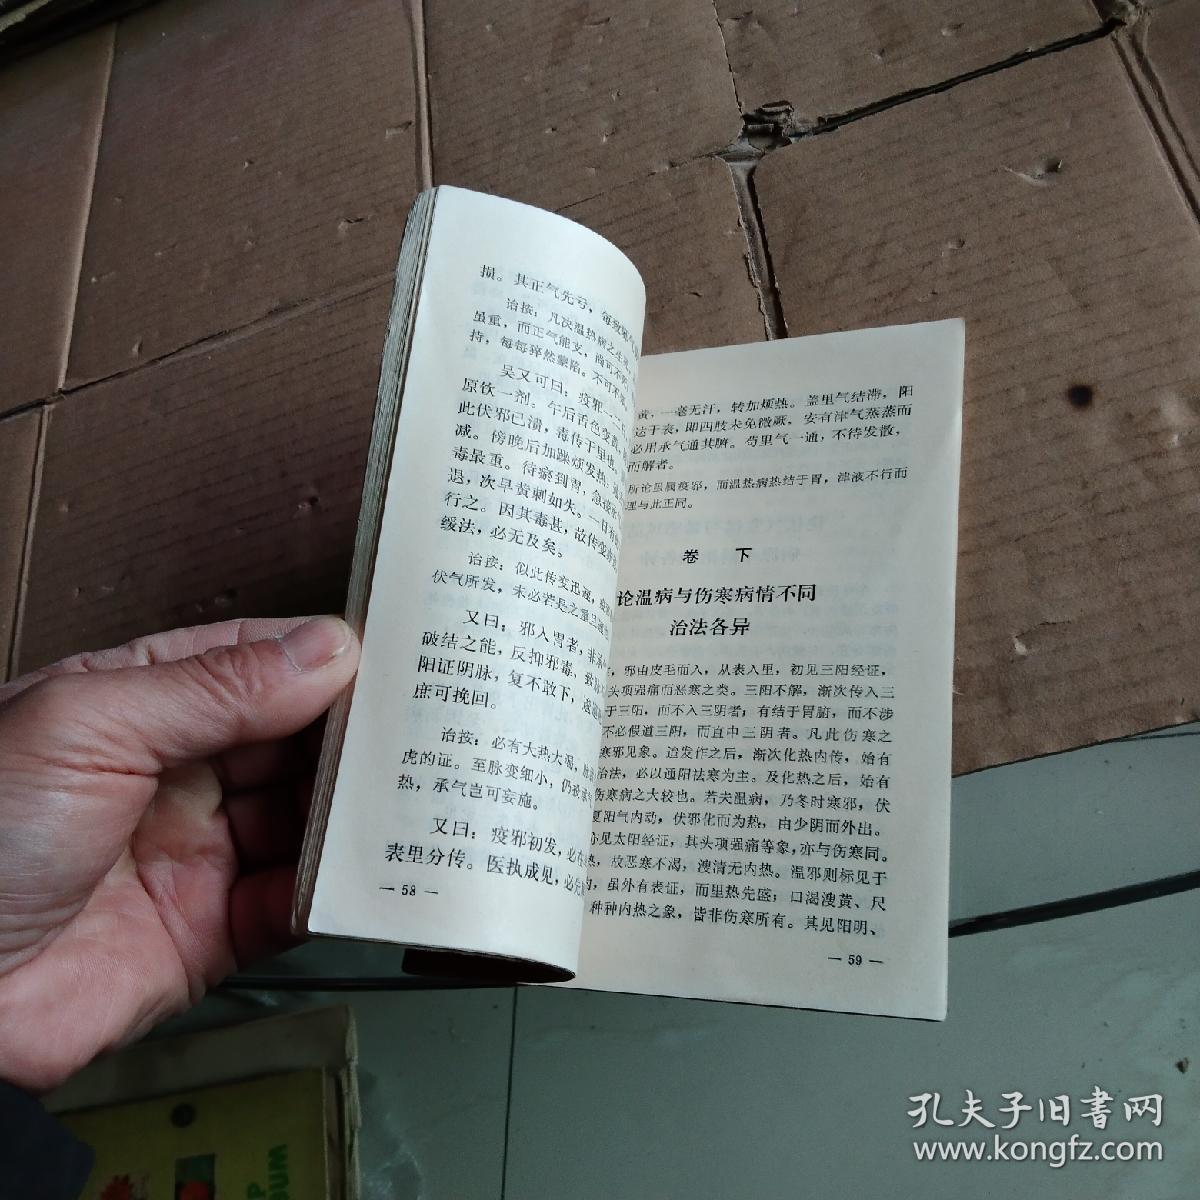 损。其正气先亏，每致邪气
治按：凡次温热病之生死，
虽重，而正气能支，尚可不
持，每每猝然蒙陷。不可不
吴又可曰：疫邪一
原饮一剂。午后舌色变黄，
此伏邪已溃，毒传于里也，
减。傍晚后加躁烦发热，
毒最重。待瘀到胃，急
退，次早黄刺如失。一日有
行之。因其毒甚，故传变亦
缓法，必无及矣。
治按：似此传变迅速，
伏气所发，未必若是之重且速
又曰：邪入胃者，非
破结之能，反抑邪毒，致脉
阳证阴脉，复不敢下，逡巡
庶可挽回。
治按：必有大热大渴，脉
虎的证。至脉变细小，仍
热，承气岂可妄施。
又曰：疫邪初发，必在
表里分传。医执成见，必先
— 58 —
黄，一毫无汗，转加烦热。盖里气结滞，阳
达于表，即四肢未免微厥，安有津气蒸蒸而
必用承气通其腑。苟里气一通，不待发散，
而解者。
所论虽属疫邪，而温热病热结于胃，津液不行而
理与此正同。
卷　下
论温病与伤寒病情不同
治法各异
，邪由皮毛而入，从表入里，初见三阳经证，
头项强痛而恶寒之类。三阳不解，渐次传入三
于三阳，而不入三阴者；有结于胃腑，而不涉
不必假道三阳，而直中三阴者。凡此伤寒之
寒邪见象。迨发作之后，渐次化热内传，始有
治法，必以通阳祛寒为主。及化热之后，始有
伤寒病之大较也。若夫温病，乃冬时寒邪，伏
夏阳气内动，伏邪化而为热，由少阴而外出。
亦见太阳经证，其头项强痛等象，亦与伤寒同。
热，故恶寒不渴，溲清无内热。温邪则标见于
内，虽外有表证，而里热先盛；口渴溲黄、尺
种种内热之象，皆非伤寒所有。其见阳明、
— 59 —
孔夫子旧书网
www.kongfz.com